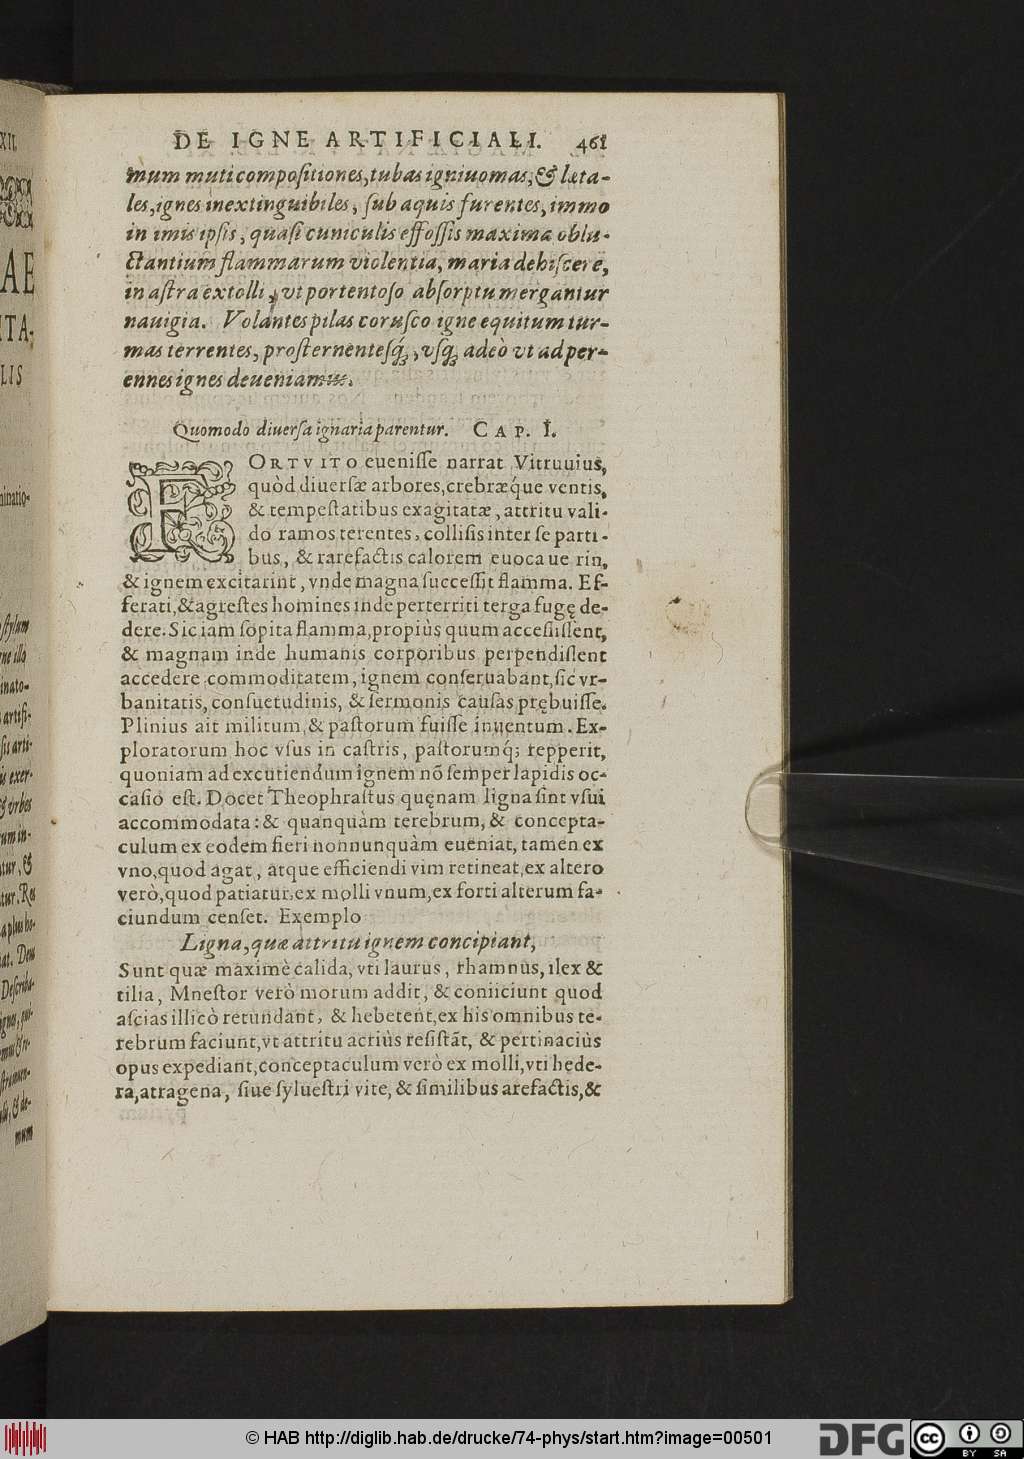 DE IGNE ARTIFICIALI. 461
mum muti compoſitiones, tubas igniuomas, & leta-
les, ignes inextinguibiles, ſub aquis furentes, immo
in imis ipſis, quaſi cuniculis effoſsis maxima oblu-
ctantium flammarum violentia, maria dehiſcere,
in aſtra extolli, vt portentoſo abſorptu mergantur
nauigia. Volantes pilas coruſco igne equitum tur-
mas terrentes, proſternenteſq́;, vſq; adeò vt ad per-
ennes ignes deueniamus.
Quomodo diuerſa ignaria parentur. CAP. I.
FORTVITO eueniſſe narrat Vitruuius,
quòd diuerſæ arbores, crebræq́ue ventis,
& tempeſtatibus exagitatæ, attritu vali-
do ramos terentes, colliſis inter ſe parti-
bus, & rarefactis calorem euocaue rin,
& ignem excitarint, vnde magna ſucceſſit flamma. Ef-
ferati, & agreſtes homines inde perterriti terga fugę de-
dere. Sic iam ſopita flamma, propiùs quum acceſsiſſent,
& magnam inde humanis corporibus perpendiſſent
accedere commoditatem, ignem conſeruabant, ſic vr-
banitatis, conſuetudinis, & ſermonis cauſas prębuiſſe.
Plinius ait militum, & paſtorum fuiſſe inuentum. Ex-
ploratorum hoc vſus in caſtris, paſtorumq́; repperit,
quoniam ad excutiendum ignem nõ ſemper lapidis oc-
caſio eſt. Docet Theophraſtus quęnam ligna ſint vſui
accommodata: & quanquàm terebrum, & concepta-
culum ex eodem fieri nonnunquàm eueniat, tamen ex
vno, quod agat, atque efficiendi vim retineat, ex altero
verò, quod patiatur: ex molli vnum, ex forti alterum fa-
ciundum cenſet. Exemplo
Ligna, quæ attritu ignem concipiant,
Sunt quæ maximè calida, vti laurus, rhamnus, ilex &
tilia, Mneſtor verò morum addit, & coniiciunt quod
aſcias illicò retundant, & hebetent, ex his omnibus te-
rebrum faciunt, vt attritu acriùs reſiſtãt, & pertinaciùs
opus expediant, conceptaculum verò ex molli, vti hede-
ra, atragena, ſiue ſylueſtri vite, & ſimilibus arefactis, &
XII.
AE
ITA-
LIS
minatio-
ſtylum
ne illo
inato-
artifi-
ſis arti-
is exer-
& vrbes
um in-
atur, &
tur. Res
a plus ho-
at. Deus
Deſcriba-
ignes, qui-
ſtrumen-
mum
© HAB http://diglib.hab.de/drucke/74-phys/start.htm?image=00501
DFG
cc
BY SA